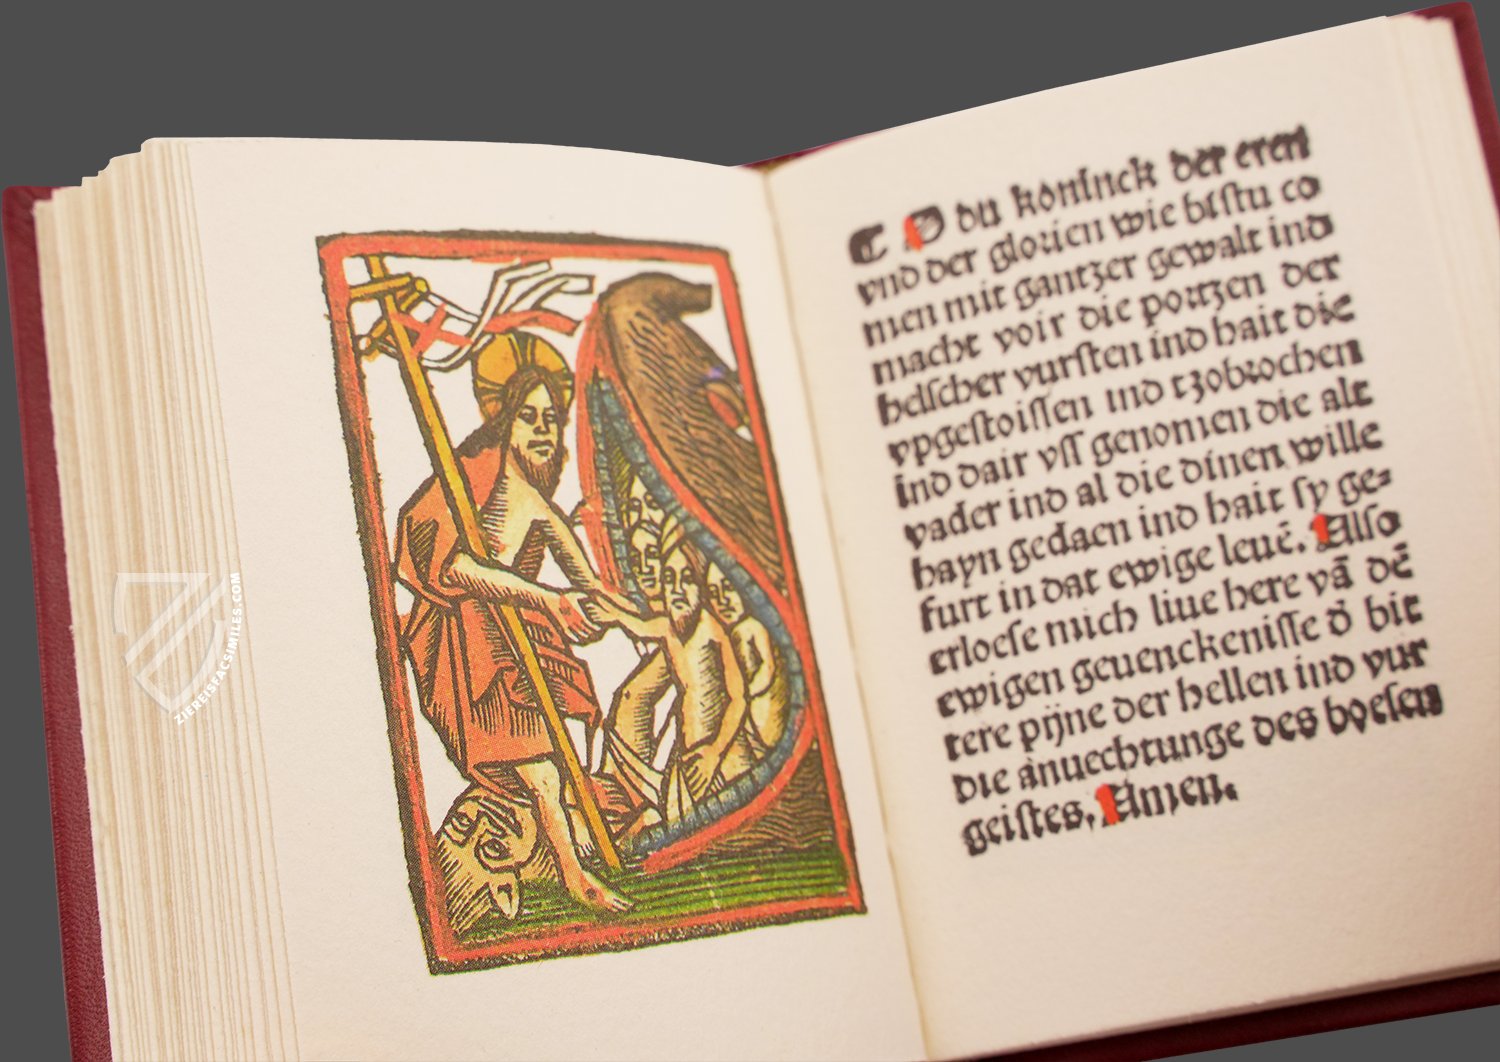 ZIEREISFACSIMILES.COM
C O du kóninck der eren
vnd der glorien wie bistu co
men mit gantzer gewalt ind
macht voir die portzen der
helscher vursten ind hait die
vpgestoissen ind tzobrochen
ind dair vss genomen die alt
vader ind al die dinen wille
hayn gedaen ind hait sy ge⸗
furt in dat ewige leuē. Also
erloese mich liue here vā dē
ewigen geuenckenisse d̄ bit
tere pijne der hellen ind vur
die anuechtunge des boesen
geistes. Amen.